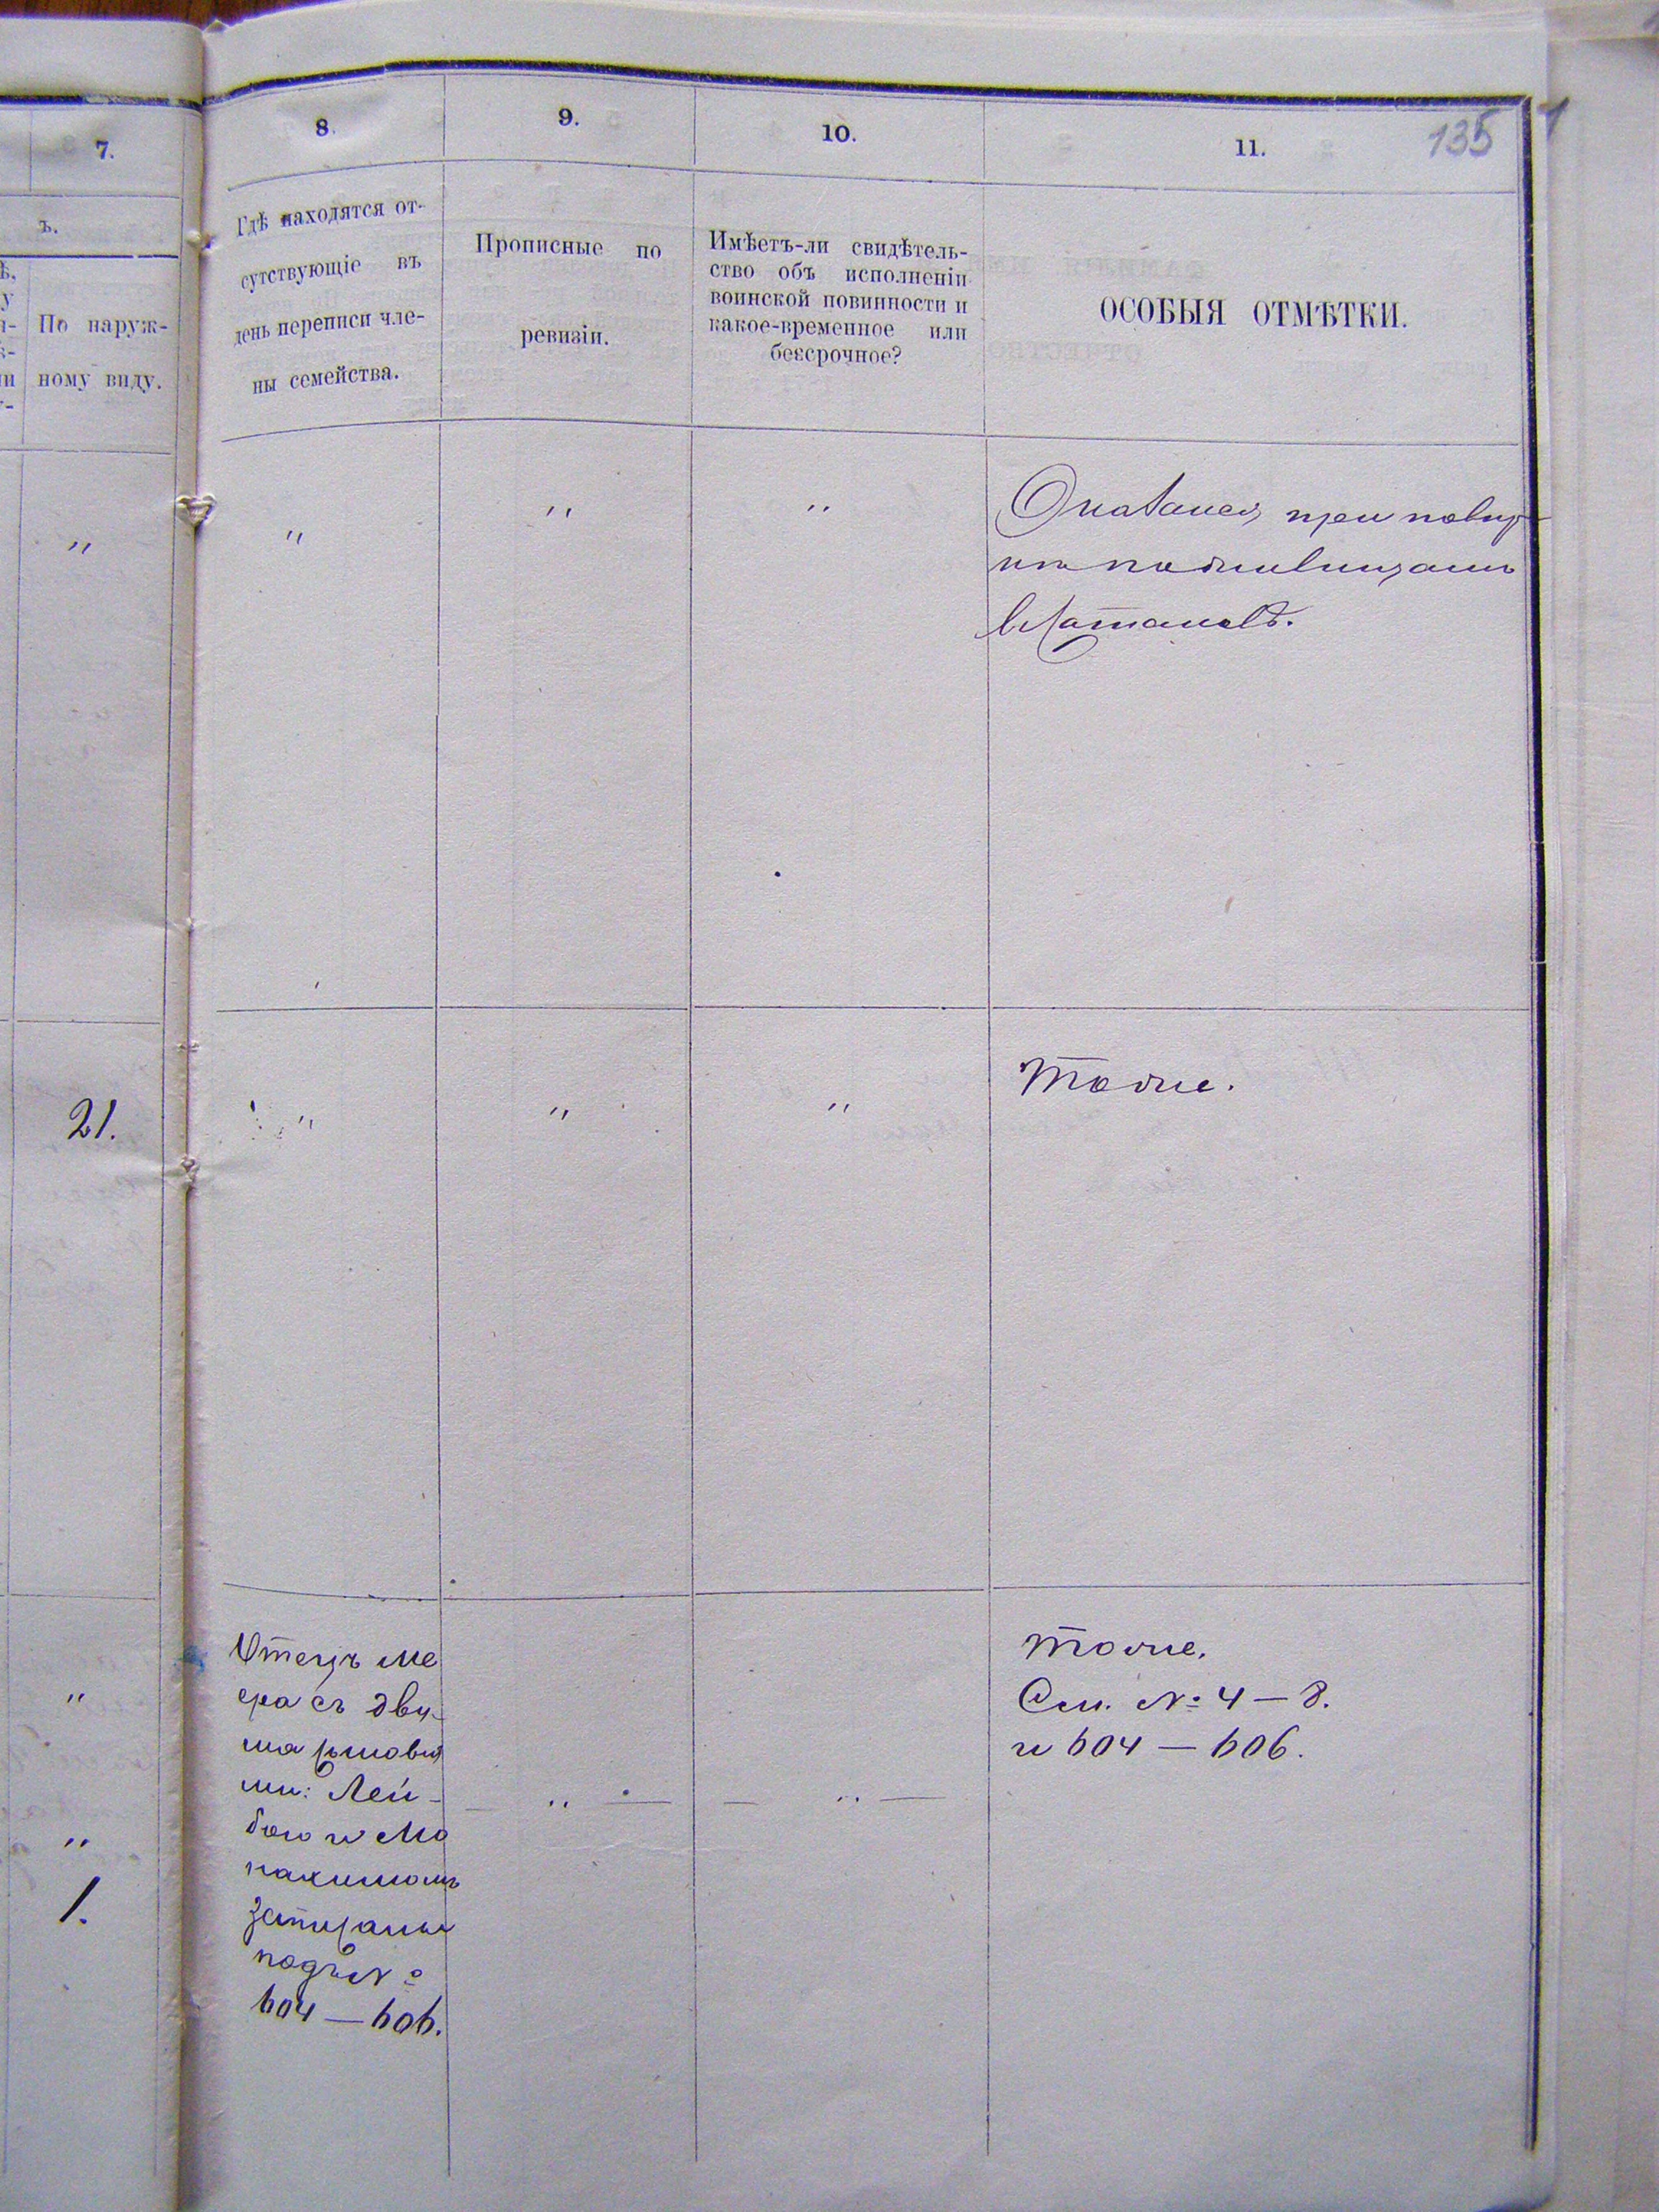 135
7.
8.
9.
10.
11.
ъ.
По наруж-
ному виду.
Гдѣ находятся от-
сутствующіе въ
день переписи чле-
ны семейства.
Прописные по
ревизіи.
Имѣетъ-ли свидѣтель-
ство объ исполненіи
воинской повинности и
какое-временное или
безсрочное?
ОСОБЫЯ ОТМѢТКИ.
"
"
"
"
Оказался при повѣр
кѣ проживающимъ
"
"
"
21.
Тоже.
"
"
1.
Отецъ Ме
ера съ дву-
мя сыновья
ми: Лей-
бою и Мо
нахимомъ
записаны
подъ №
604 — 606.
— " — — " —
Тоже.
См. № 4 — 8.
и 604 — 606.